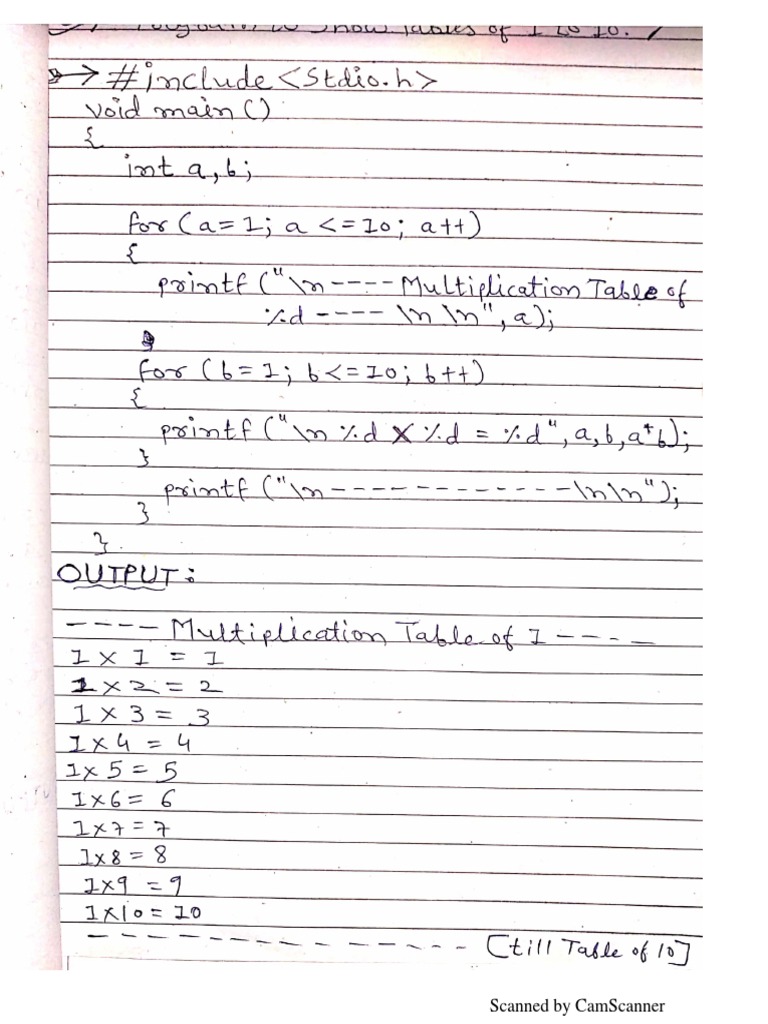 Program to Show Tables of 1 to 10.
→ #include <Stdio.h>
void main ()
{
int a, b;
for (a = 1; a <= 10; a++)
{
printf ("\n---- Multiplication Table of
%d ---- \n \n", a);
for (b = 1; b <= 10; b++)
{
printf ("\n %d X %d = %d", a, b, a*b);
}
printf ("\n-------------\n\n");
}
}
OUTPUT:
---- Multiplication Table of 1 ----
1 X 1 = 1
1 X 2 = 2
1 X 3 = 3
1 X 4 = 4
1 X 5 = 5
1 X 6 = 6
1 X 7 = 7
1 X 8 = 8
1 X 9 = 9
1 X 10 = 10
--------------- [till Table of 10]
Scanned by CamScanner